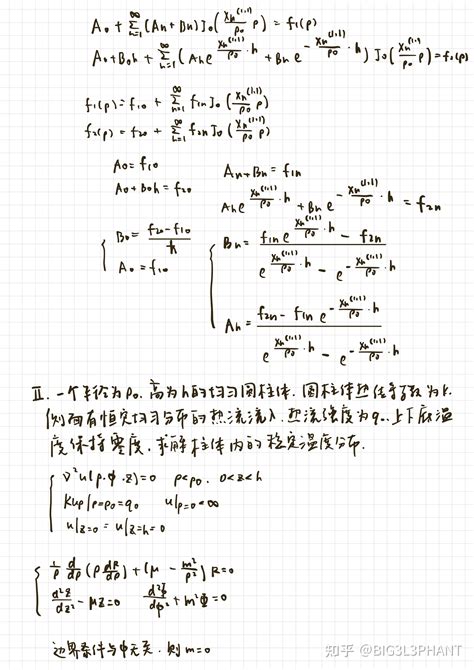 A₀ + Σ_{n=1}^{∞} (An + Bn) J₀(xₙ⁽¹·¹⁾/ρ₀ ρ) = f₁(ρ)
A₀ + B₀h + Σ_{n=1}^{∞} (An e^{xₙ⁽¹·¹⁾/ρ₀ · h} + Bn e^{-xₙ⁽¹·¹⁾/ρ₀ · h}) J₀(xₙ⁽¹·¹⁾/ρ₀ ρ) = f₂(ρ)
f₁(ρ) = f₁₀ + Σ_{n=1}^{∞} f₁n J₀(xₙ⁽¹·¹⁾/ρ₀ ρ)
f₂(ρ) = f₂₀ + Σ_{n=1}^{∞} f₂n J₀(xₙ⁽¹·¹⁾/ρ₀ ρ)
A₀ = f₁₀ An + Bn = f₁n
A₀ + B₀h = f₂₀ An e^{xₙ⁽¹·¹⁾/ρ₀ · h} + Bn e^{-xₙ⁽¹·¹⁾/ρ₀ · h} = f₂n
{ B₀ = (f₂₀ - f₁₀)/h { Bn = (f₁n e^{xₙ⁽¹·¹⁾/ρ₀ · h} - f₂n)/(e^{xₙ⁽¹·¹⁾/ρ₀ · h} - e^{-xₙ⁽¹·¹⁾/ρ₀ · h})
A₀ = f₁₀
An = (f₂n - f₁n e^{-xₙ⁽¹·¹⁾/ρ₀ · h})/(e^{xₙ⁽¹·¹⁾/ρ₀ · h} - e^{-xₙ⁽¹·¹⁾/ρ₀ · h})
Ⅱ. 一个半径为ρ₀. 高为h的均匀圆柱体. 圆柱体热传导系数为k.
侧面有恒定均匀分布的热流流入. 热流强度为q₀. 上下底温
度保持零度. 求解柱体内的稳定温度分布.
{ ∇²u(ρ.φ.z) = 0 ρ<ρ₀. 0<z<h
kuρ|ρ=ρ₀ = q₀ u|ρ=0 <∞
u|z=0 = u|z=h = 0
{ 1/ρ d/dρ (ρ dR/dρ) + (μ - m²/ρ²) R = 0
d²Z/dz² - μZ = 0 d²Φ/dφ² + m²Φ = 0
边界条件与φ无关. 则 m=0
知乎 @BIG3L3PHANT